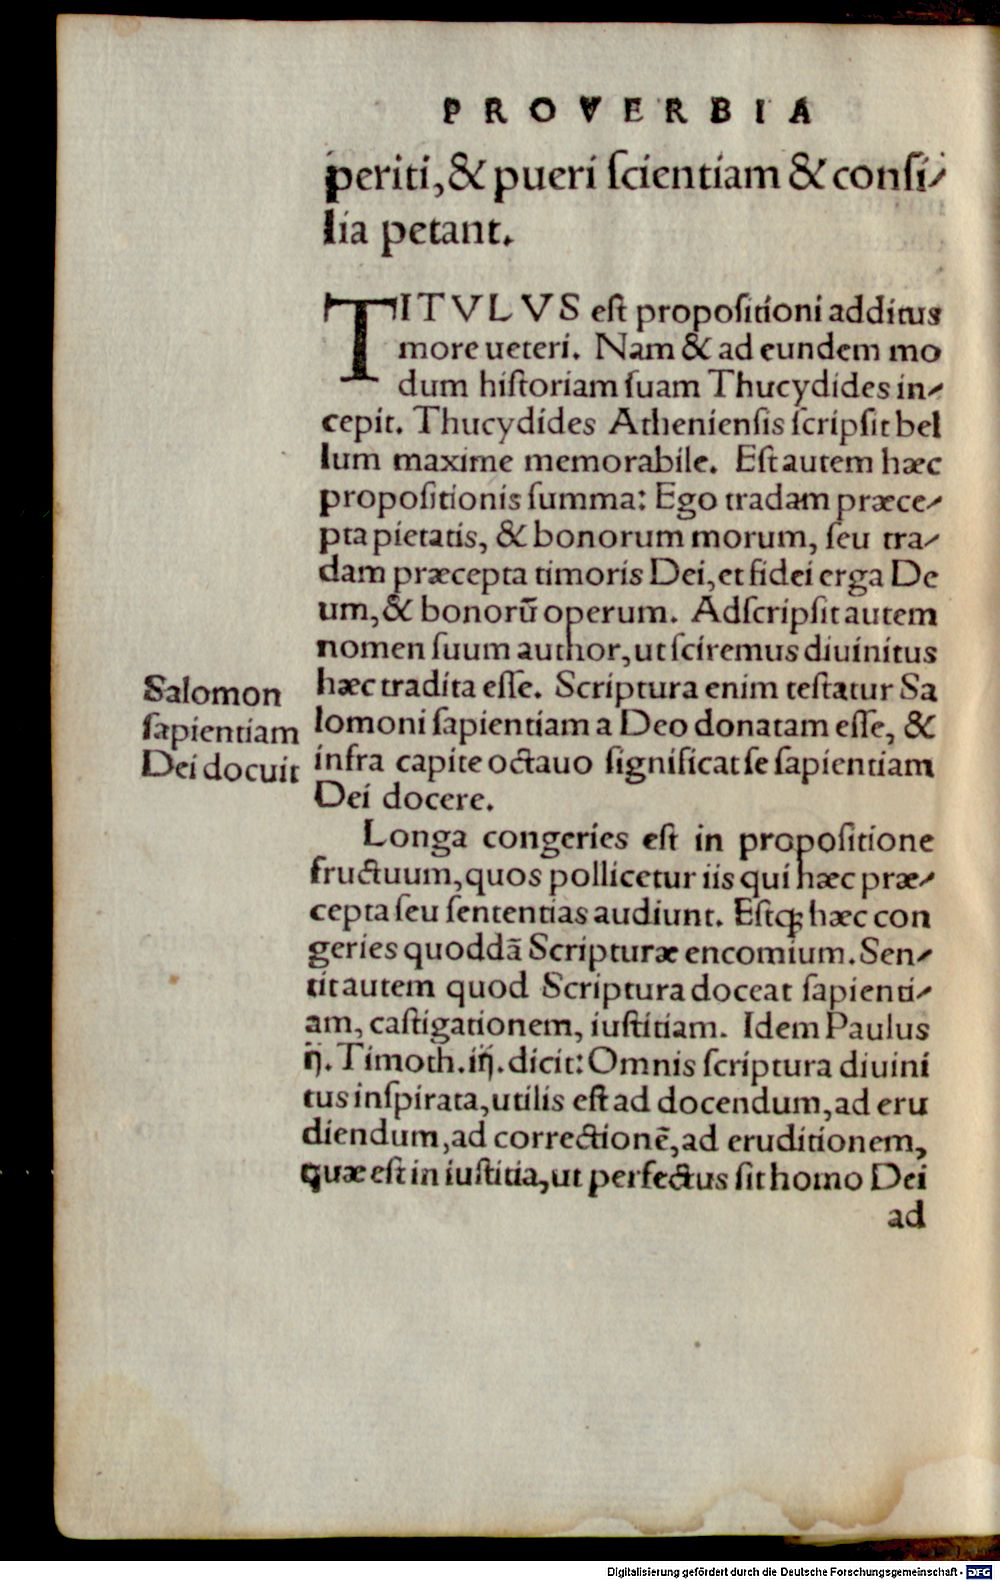 PROVERBIA
periti, & pueri ſcientiam & conſi-
lia petant.
TITVLVS eſt propoſitioni additus
more ueteri. Nam & ad eundem mo
dum hiſtoriam ſuam Thucydides in-
cepit. Thucydides Athenienſis ſcripſit bel
lum maxime memorabile. Eſt autem hæc
propoſitionis ſumma: Ego tradam præce-
pta pietatis, & bonorum morum, ſeu tra-
dam præcepta timoris Dei, et fidei erga De
um, & bonorũ operum. Adſcripſit autem
nomen ſuum author, ut ſciremus diuinitus
hæc tradita eſſe. Scriptura enim teſtatur Sa
lomoni ſapientiam a Deo donatam eſſe, &
infra capite octauo ſignificat ſe ſapientiam
Dei docere.
Salomon
ſapientiam
Dei docuit
Longa congeries eſt in propoſitione
fructuum, quos pollicetur iis qui hæc præ-
cepta ſeu ſententias audiunt. Eſtq́ꝫ hæc con
geries quoddã Scripturæ encomium. Sen-
tit autem quod Scriptura doceat ſapienti-
am, caſtigationem, iuſtitiam. Idem Paulus
ij. Timoth. iij. dicit: Omnis ſcriptura diuini
tus inſpirata, utilis eſt ad docendum, ad eru
diendum, ad correctionẽ, ad eruditionem,
quæ eſt in iuſtitia, ut perfectus ſit homo Dei
ad
Digitalisierung gefördert durch die Deutsche Forschungsgemeinschaft - DFG